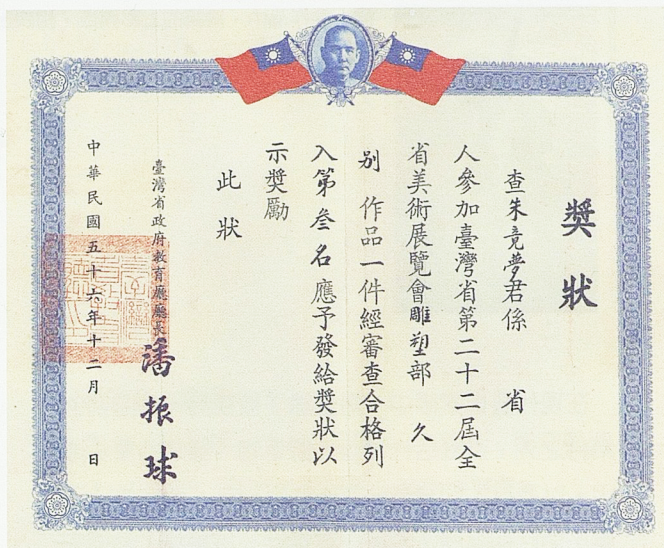 獎狀
查朱竟夢君係　省
人參加臺灣省第二十二屆全
省美術展覽會雕塑部　久
別　作品一件經審查合格列
入第叁名應予發給獎狀以
示獎勵
此狀
臺灣省政府教育廳廳長潘振球
中華民國五十六年十二月　日